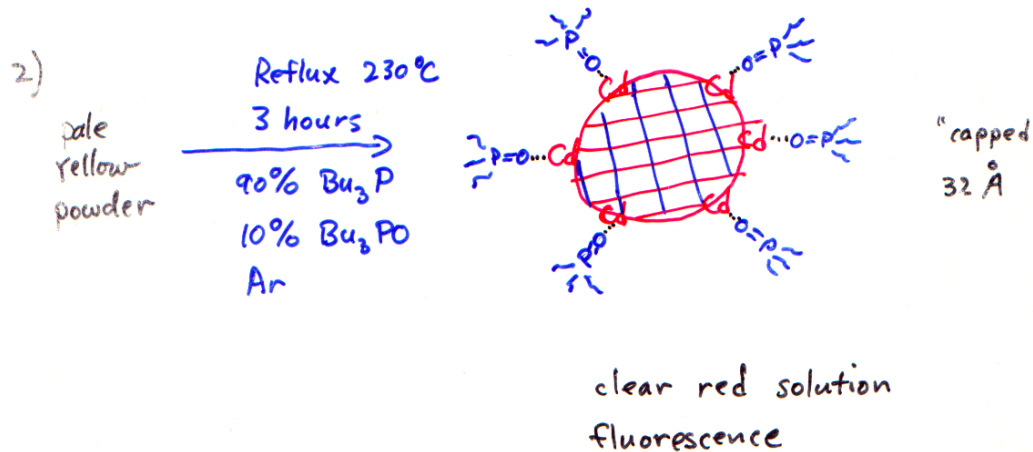 2)
pale
yellow
powder
Reflux 230°C
3 hours
90% Bu₃P
10% Bu₃PO
Ar
P=O···Cd
P=O···Cd
P=O···Cd
Cd···O=P
Cd···O=P
Cd···O=P
"capped
32 Å
clear red solution
fluorescence